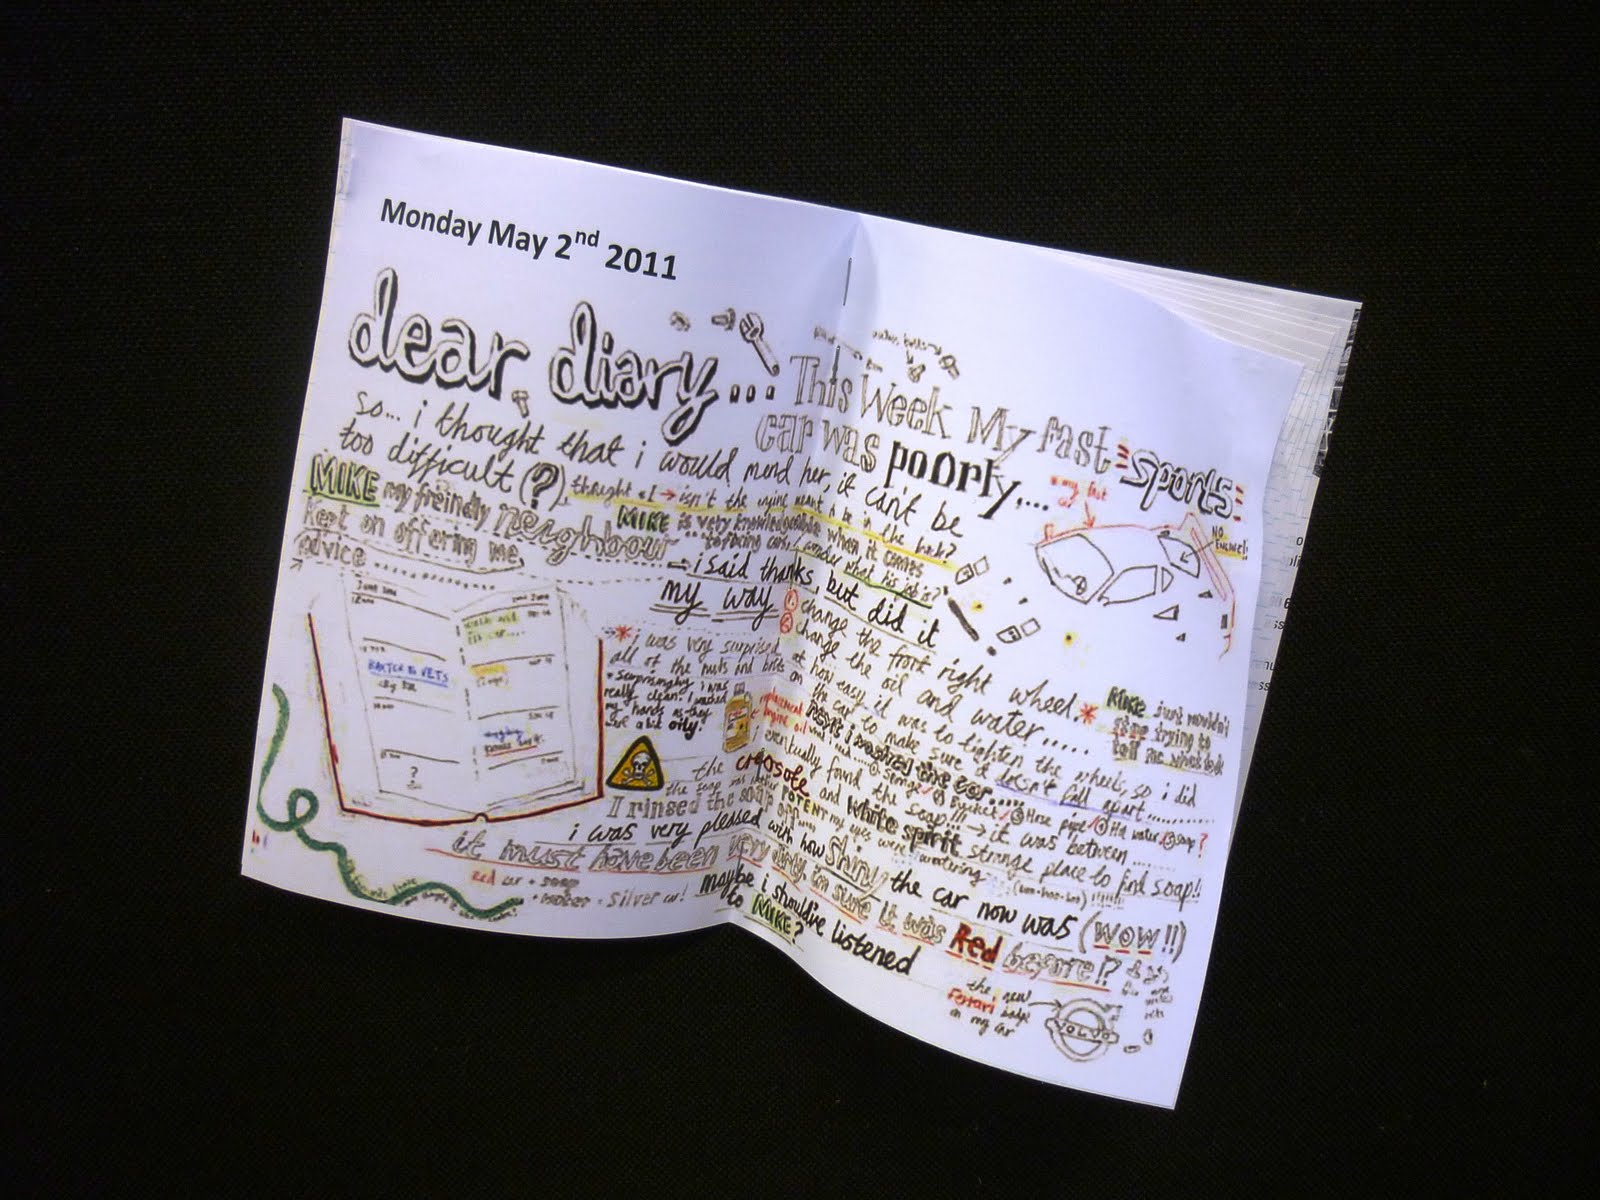 Monday May 2nd 2011
dear diary... This Week My fast
sports
car was poorly....
so... i thought that i would mend her, it can't be
too difficult (?),
thought *1 → isn't the engine meant to be in the back?
my fast
car
NO
MIKE my freindly neighbour
MIKE is very knowledgeable when it comes
kept on offering me
advice
to fixing cars, i wonder what his job is?
→ i said thanks, but did it
my way
1. change the front right wheel.*
2. change the oil and water.....
MIKE just wouldn't
stop trying to
tell me what to do
BAXTER to VETS
?
* i was very surprised at how easy it was to tighten the wheels, so i did
all of the nuts and bolts on the car to make sure it doesn't fall apart........
* surprisingly i was
really clean. I washed
my hands as they
were a bit oily!
replacement
engine oil
next i washed the car....
Sponge / Bucket / Hose pipe / Hot water / Soap?
i eventually found the soap!!! → it was between
the creosote and white spirit strange place to find soap!!
the soap was rather POTENT my eyes were watering (boo-hoo-hoo) !!!!!!!
I rinsed the soap off
i was very pleased with how shiny the car now was (WOW!!)
it must have been very dirty, i'm sure it was Red before!?
red car + soap
+ water = silver car!
maybe i should've listened
to MIKE?
the new
Ferrari badge
on my car
VOLVO